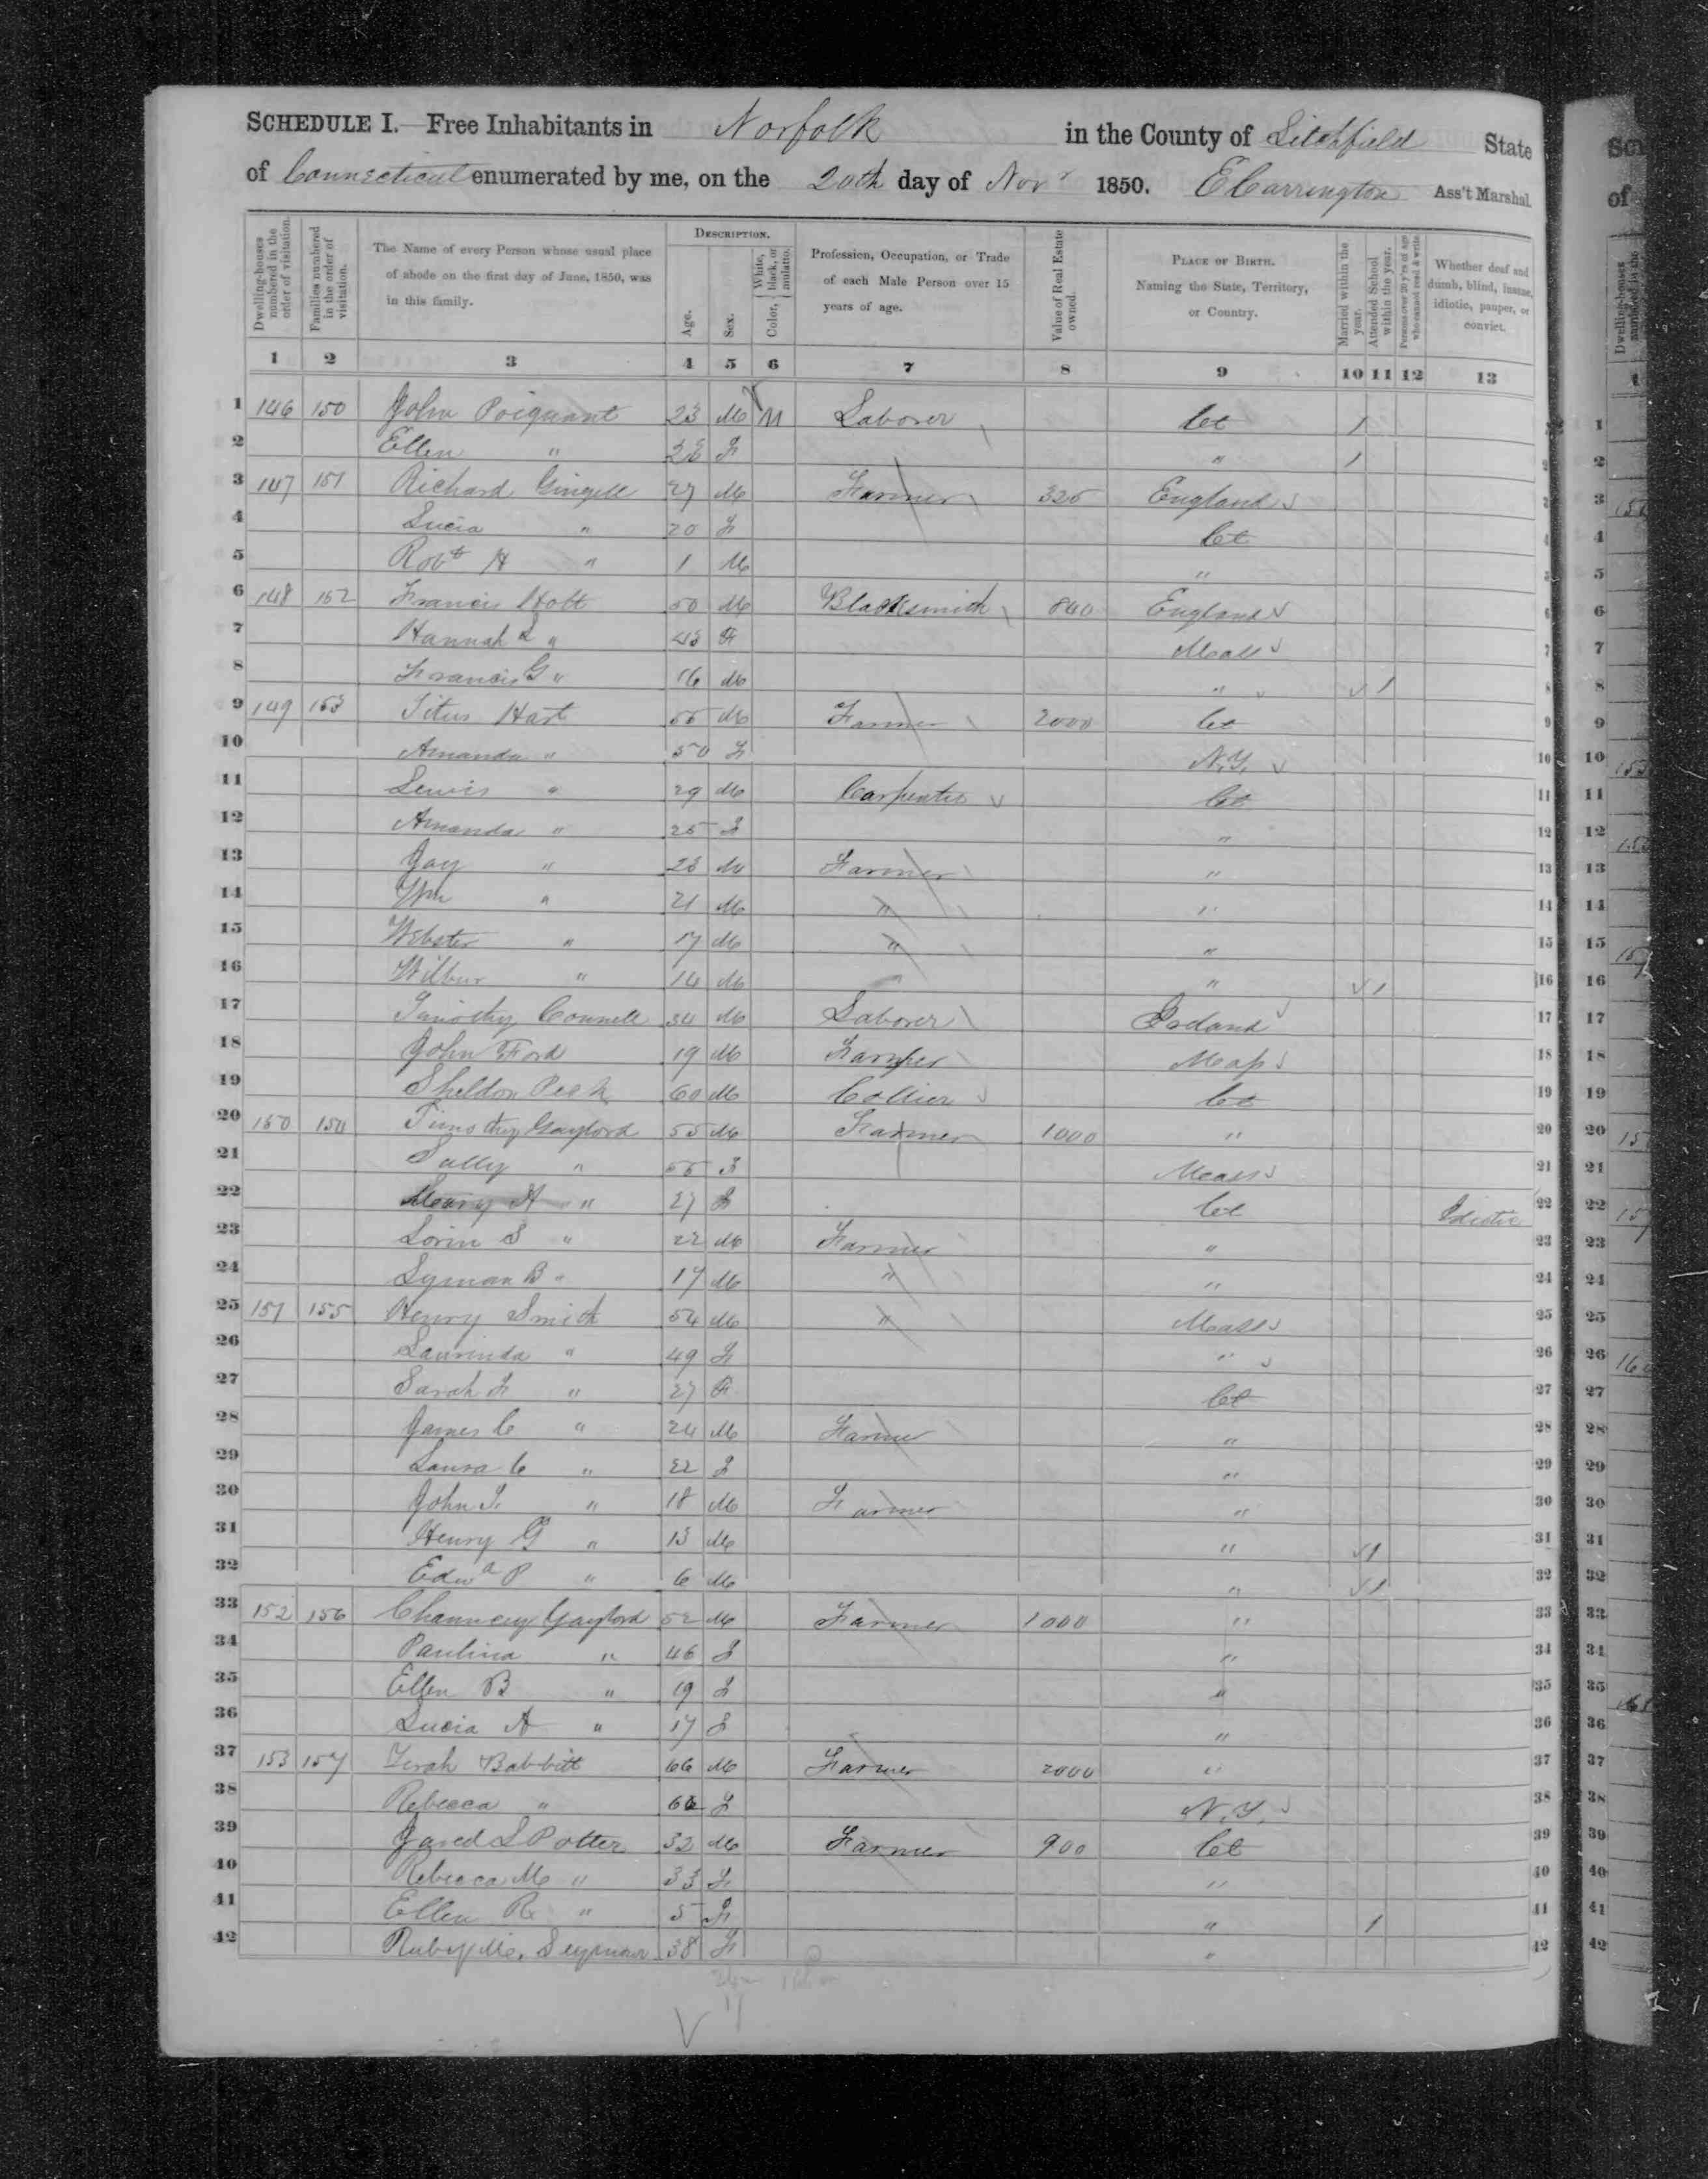 SCHEDULE I. Free Inhabitants in Norfolk in the County of Litchfield State
of Connecticut enumerated by me, on the 20th day of Novr 1850. E Carrington Ass't Marshal.
Dwelling-houses numbered in the order of visitation. Families numbered in the order of visitation. The Name of every Person whose usual place of abode on the first day of June, 1850, was in this family. DESCRIPTION. Age. Sex. Color, { White, black, or mulatto. Profession, Occupation, or Trade of each Male Person over 15 years of age. Value of Real Estate owned. PLACE OF BIRTH. Naming the State, Territory, or Country. Married within the year. Attended School within the year. Persons over 20 y'rs of age who cannot read & write Whether deaf and dumb, blind, insane, idiotic, pauper, or convict.
1 2 3 4 5 6 7 8 9 10 11 12 13
1 146 150 John Poiquant 23 M M Laborer Ct 1 1
2 Ellen " F " 1 2
3 147 151 Richard Gingell 27 M Farmer 325 England 3
4 Lucia " 20 F Ct 4
5 Robt H " 1 M " 5
6 148 152 Francis Holt 50 M Blacksmith 840 England 6
7 Hannah L " 43 F Mass 7
8 Francis G " 16 M " 1 8
9 149 153 Titus Hart 55 M Farmer 2000 Ct 9
10 Amanda " 50 F N.Y. 10
11 Lewis " 29 M Carpenter Ct 11
12 Amanda " 25 F " 12
13 Gay " 23 M Farmer " 13
14 Wm " 21 M " " 14
15 Webster " 17 M " " 15
16 Wilbur " 14 M " 1 16
17 Timothy Connell 34 M Laborer Ireland 17
18 John Ford 19 M Farmer Mass 18
19 Sheldon Peck 60 M Collier Ct 19
20 150 154 Timothy Gaylord 55 M Farmer 1000 " 20
21 Sally " 55 F Mass 21
22 Mary A " 27 F Ct Idiotic 22
23 Lorin S " 22 M Farmer " 23
24 Lyman B " 17 M " " 24
25 151 155 Henry Smith 54 M " Mass 25
26 Laurinda " 49 F " 26
27 Sarah F " 27 F Ct 27
28 James C " 24 M Farmer " 28
29 Laura C " 22 F " 29
30 John " 18 M Farmer " 30
31 Henry G " 13 M " 1 31
32 Edwd P " 6 M " 1 32
33 152 156 Chauncey Gaylord 52 M Farmer 1000 " 33
34 Paulina " 46 F " 34
35 Ellen B " 19 F " 35
36 Lucia A " 17 F " 36
37 153 157 Zerah Babbitt 66 M Farmer 2000 " 37
38 Rebecca " F N.Y. 38
39 Jared S Potter 32 M Farmer 900 Ct 39
40 Rebecca M " 33 F " 40
41 Ellen R " 5 F " 1 41
42 Ruby M. Seymour 38 F " 42